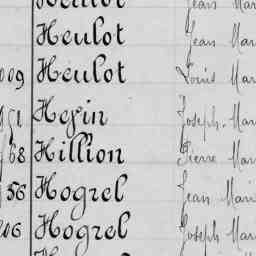 Heulot Jean Mar
Heulot Jean Mar
009 Heulot Louis Mar
Hepin Joseph-Mar
68 Hillion Pierre Mar
56 Hogrel Jean Mari
206 Hogrel Joseph Mar